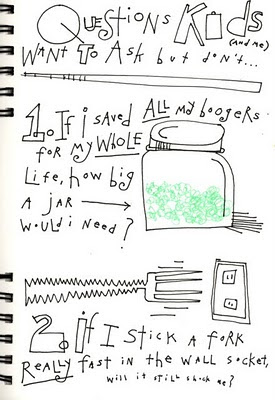 QUESTIONS KIdS
(and me)
WANT TO Ask but don't...
1. If i saved ALL my boogers
for my WHOLE
Life, how big
A jAR
would i need?
2. If I STICK A foRk
REALLY fAST in the wALL socket,
will it still shock me?